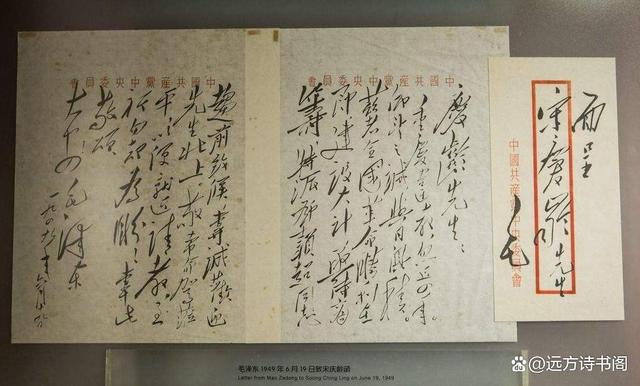 面呈
宋慶齡先生
毛
中國共產黨中央委員會
中國共產黨中央委員會
慶齡先生：
重慶違教，忽近四年。
仰望之誠，與日俱積。
茲者全國革命勝利在
即，建設大計，亟待商
籌，特派鄧穎超同志
中國共產黨中央委員會
趨前致候，專誠歡迎
先生北上。敬希命駕蒞
平，以便就近請教，至
祈勿却為盼！專此
敬頌
大安！毛澤東
一九四九年六月十九日
毛泽东 1949 年 6 月 19 日致宋庆龄函
Letter from Mao Zedong to Soong Ching Ling on June 19, 1949
@远方诗书阁